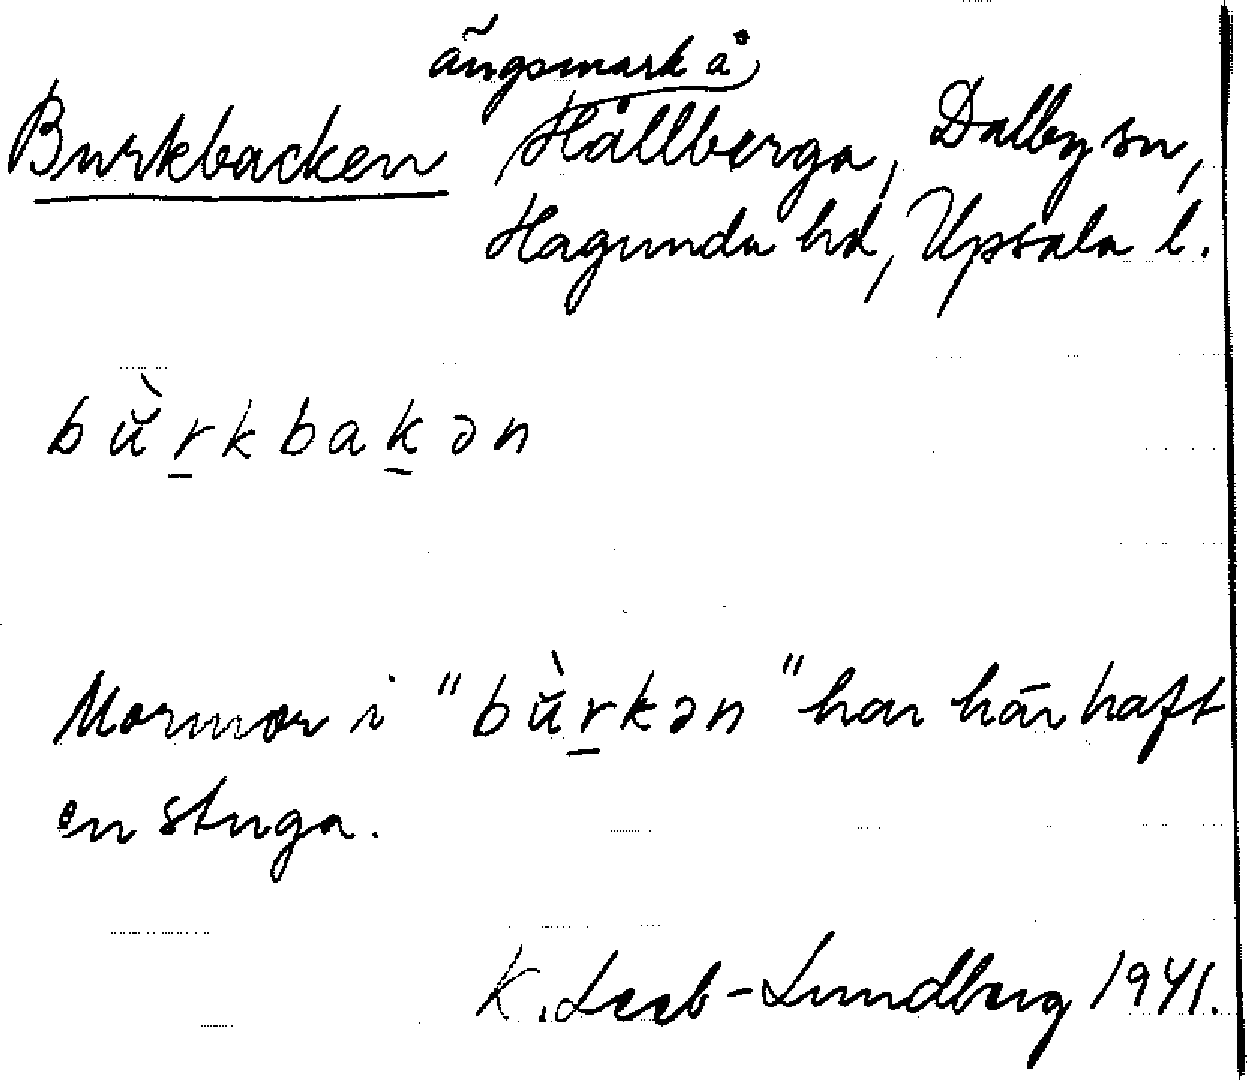 ängsmark å
Burkbacken Hållberga, Dalby sn,
Hagunda hd, Upsala l.
bŭ̀r̠kbak̠ən
Mormor i "bŭ̀r̠kən" har här haft
en stuga.
K. Leeb-Lundberg 1941.